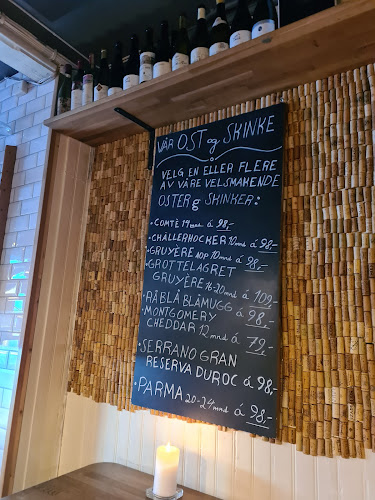 VÅR OST og SKINKE
VELG EN ELLER FLERE
AV VÅRE VELSMAKENDE
OSTER og SKINKER:
• COMTÈ 19 mnd á 98,-
• CHÄLLERHOCKER 10 mnd á 98,-
• GRUYÈRE AOP 10 mnd á 98,-
• GROTTELAGRET
GRUYÈRE 16-20 mnd á 109,-
• RÅBLÅ BLÅMUGG á 98,-
• MONTGOMERY
CHEDDAR 12 mnd á 79,-
• SERRANO GRAN
RESERVA DUROC á 98,-
• PARMA 20-24 mnd á 98,-